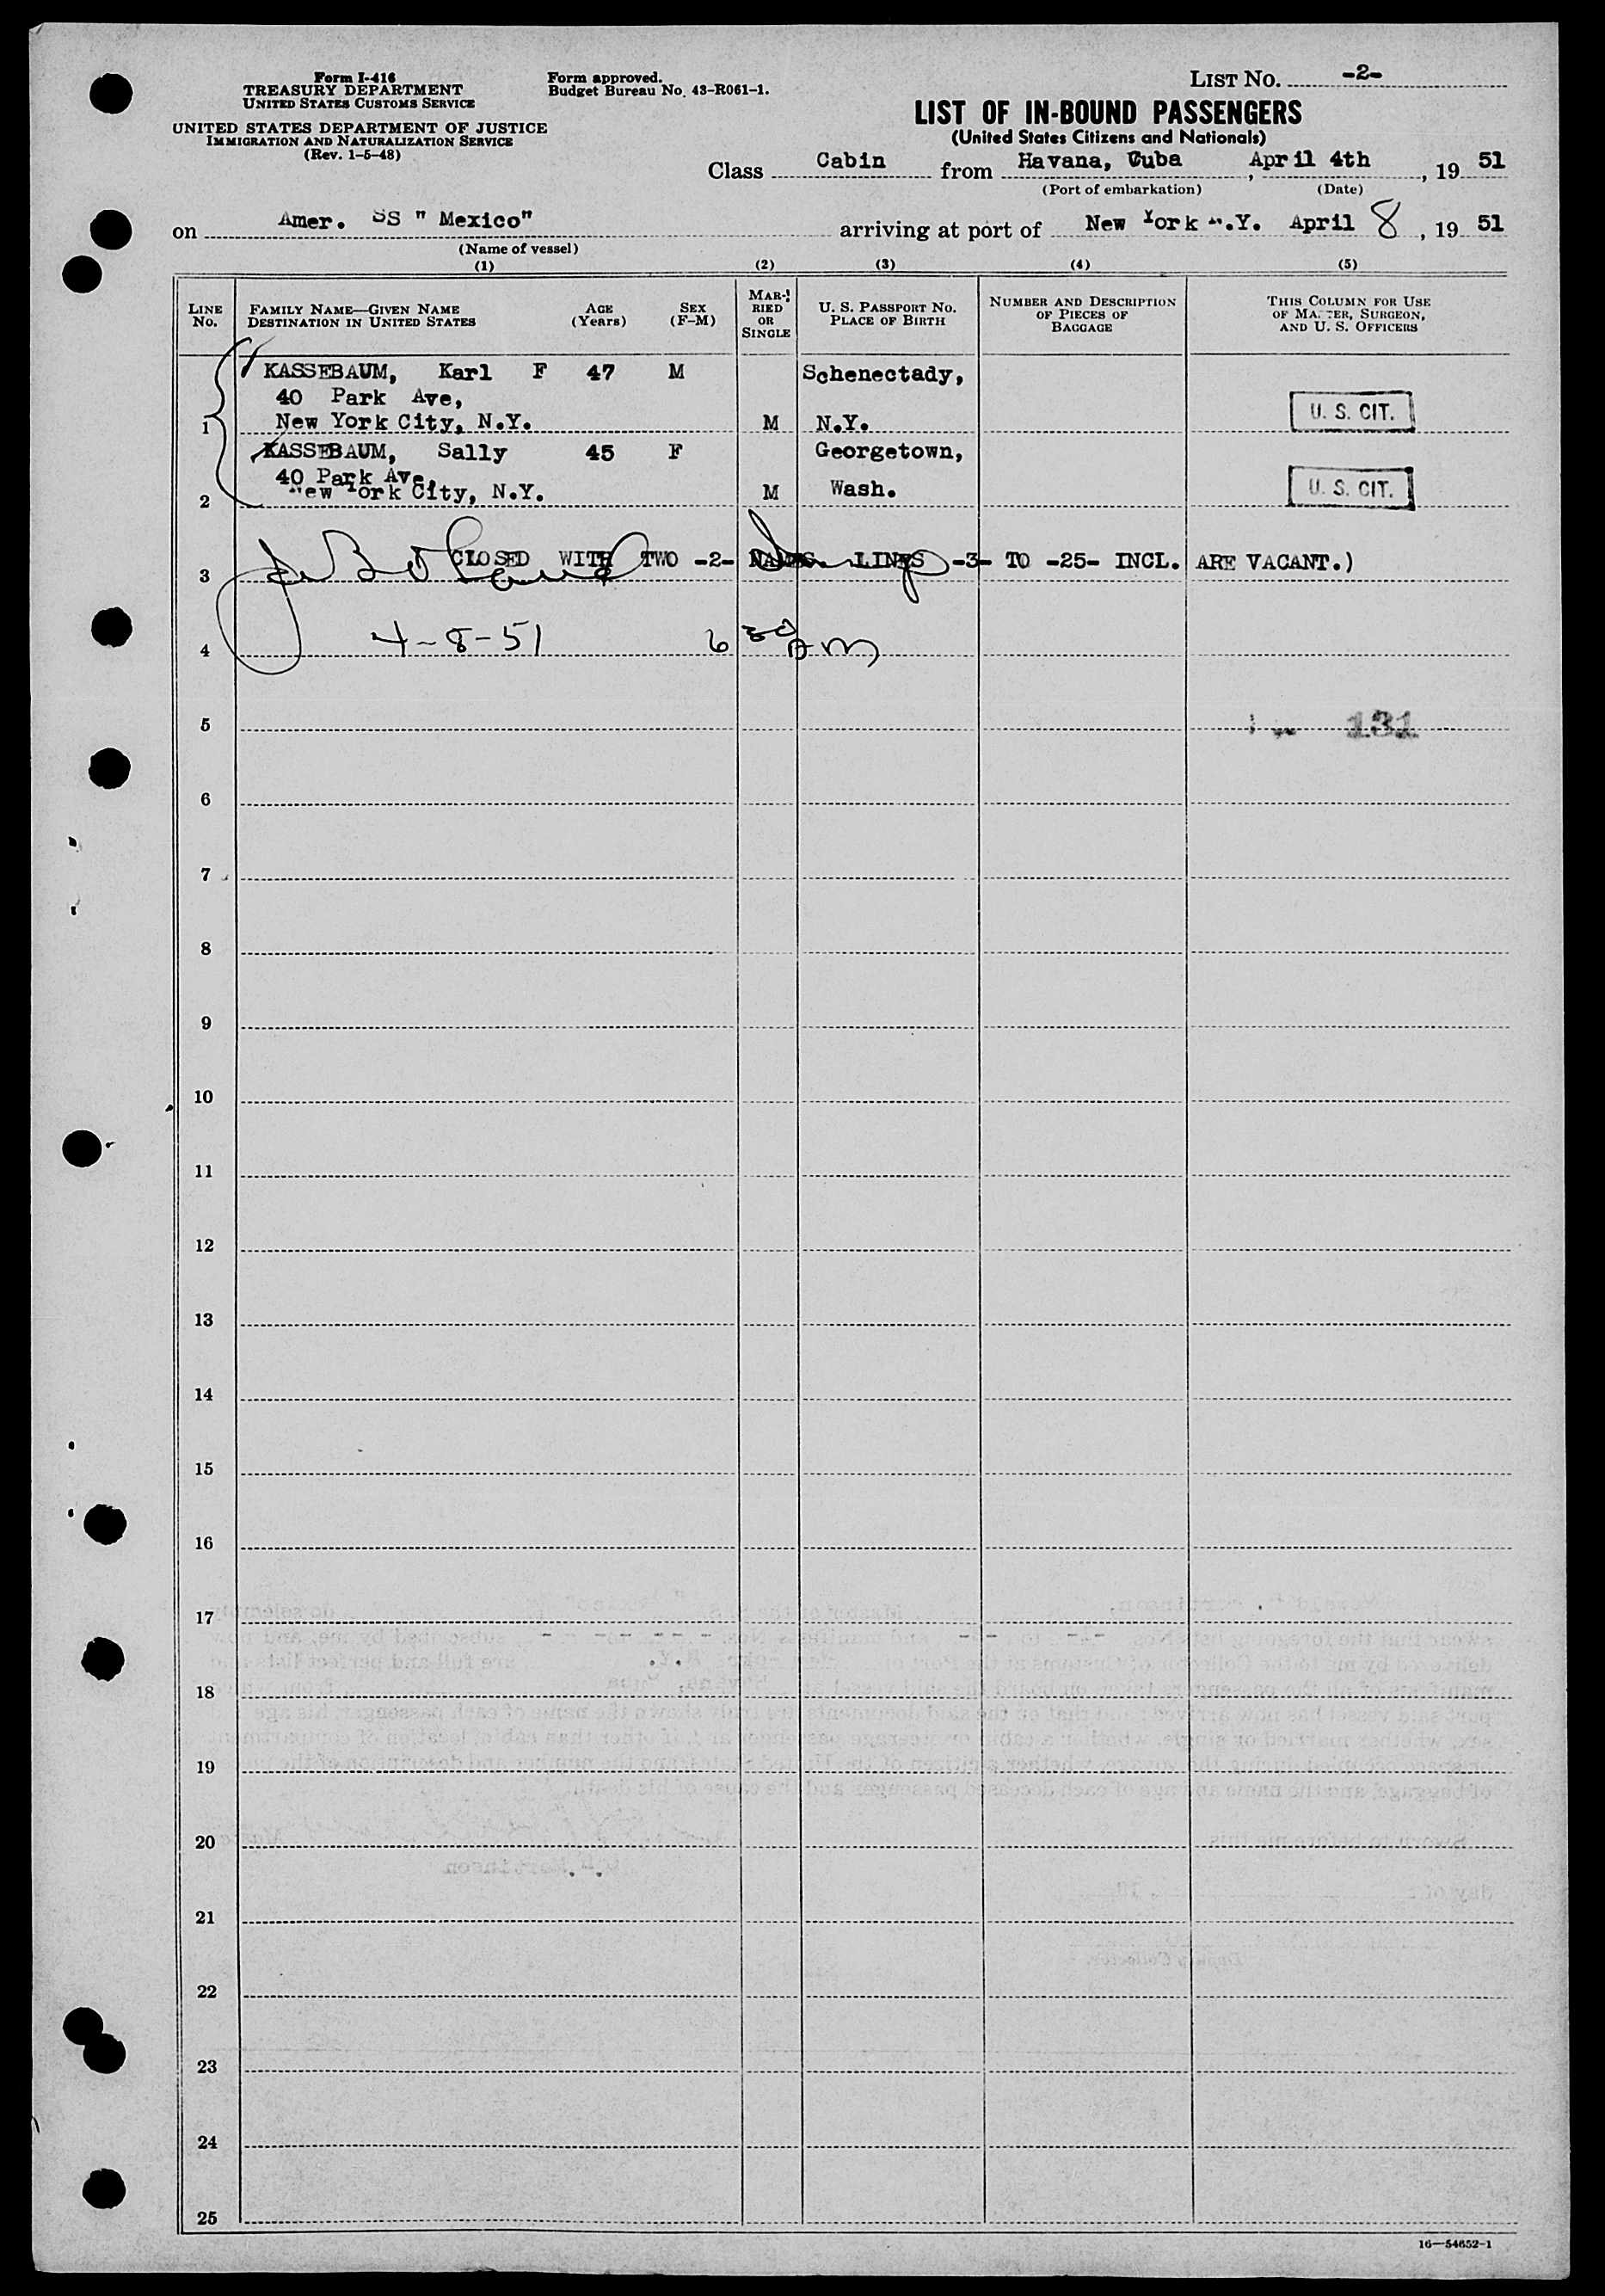 Form I-416
TREASURY DEPARTMENT
UNITED STATES CUSTOMS SERVICE
UNITED STATES DEPARTMENT OF JUSTICE
IMMIGRATION AND NATURALIZATION SERVICE
(Rev. 1-5-48)
Form approved.
Budget Bureau No. 43-R061-1.
LIST No. -2-
LIST OF IN-BOUND PASSENGERS
(United States Citizens and Nationals)
Class Cabin from Havana, Cuba , April 4th , 19 51
(Port of embarkation) (Date)
on Amer. SS " Mexico" arriving at port of New York N.Y. April 8 , 19 51
(Name of vessel)
(1) (2) (3) (4) (5)
LINE No. FAMILY NAME—GIVEN NAME DESTINATION IN UNITED STATES AGE (Years) SEX (F-M) MARRIED OR SINGLE U. S. PASSPORT No. PLACE OF BIRTH NUMBER AND DESCRIPTION OF PIECES OF BAGGAGE THIS COLUMN FOR USE OF MASTER, SURGEON, AND U. S. OFFICERS
KASSEBAUM, Karl F 47 M Schenectady,
40 Park Ave,
1 New York City, N.Y. M N.Y. U. S. CIT.
KASSEBAUM, Sally 45 F Georgetown,
40 Park Ave,
2 New York City, N.Y. M Wash. U. S. CIT.
3 CLOSED WITH TWO -2- NAMES. LINES -3- TO -25- INCL. ARE VACANT.)
4 4-8-51 6 30 AM
5 131
6
7
8
9
10
11
12
13
14
15
16
17
18
19
20
21
22
23
24
25
16—54652-1